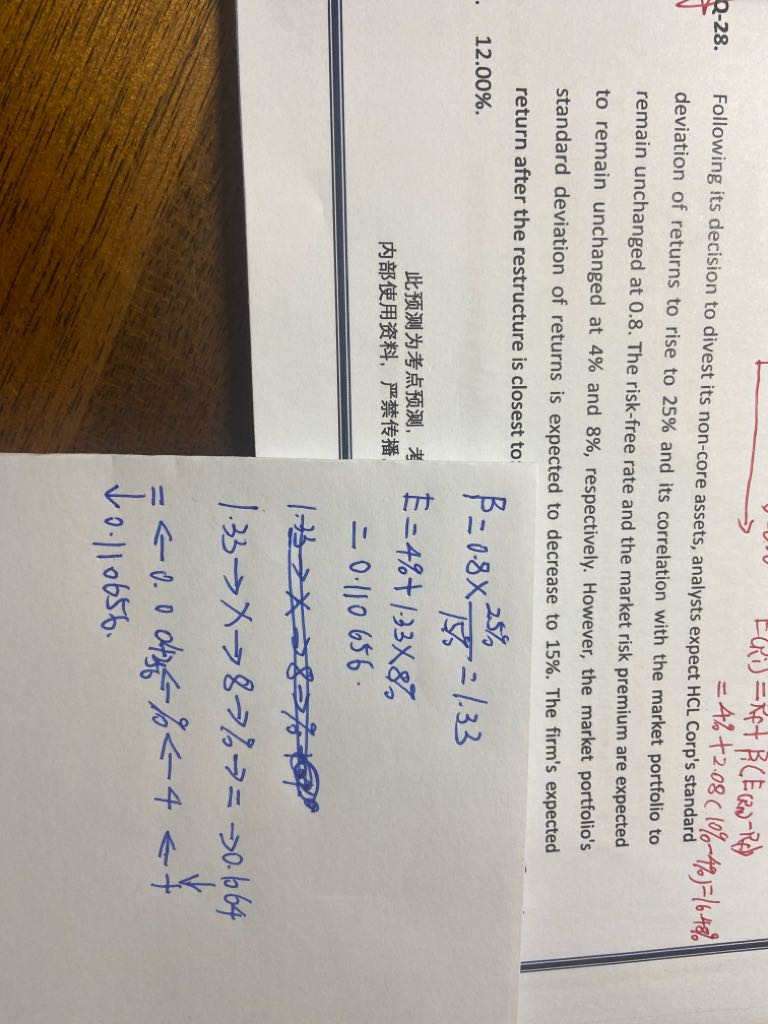 E(Ri) = Rf + β(E(Rm) - Rf)
= 4% + 2.08 (10% - 4%) = 16.48%
Q-28. Following its decision to divest its non-core assets, analysts expect HCL Corp's standard
deviation of returns to rise to 25% and its correlation with the market portfolio to
remain unchanged at 0.8. The risk-free rate and the market risk premium are expected
to remain unchanged at 4% and 8%, respectively. However, the market portfolio's
standard deviation of returns is expected to decrease to 15%. The firm's expected
return after the restructure is closest to:
. 12.00%.
此预测为考点预测，考
内部使用资料，严禁传播
β = 0.8 × 25% / 15% = 1.33
E = 4% + 1.33 × 8%
= 0.110656.
1.33 → × → 8 → % → = → 0.1064
= ← 0.0 ← % ← 4 ← +
↓ 0.110656.